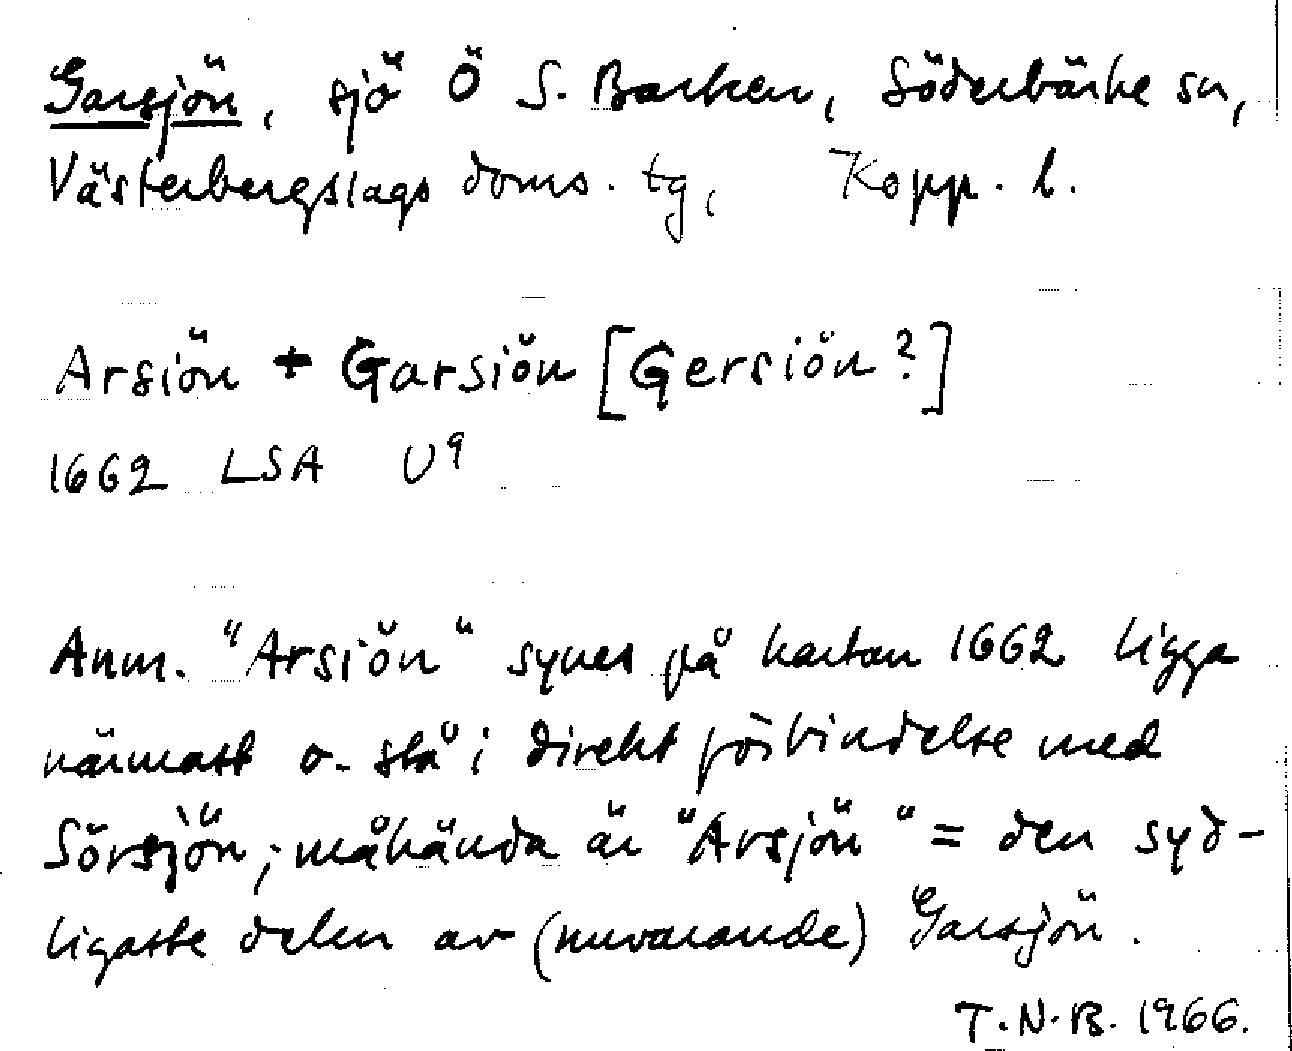 Garsjön, sjö Ö S. Barken, Söderbärke sn,
Västerbergslags doms. tg, Kopp. l.
Arsiön + Garsiön [Gersiön?]
1662 LSA U9
Anm. "Arsiön" synes på kartan 1662 ligga
närmast o. stå i direkt förbindelse med
Sörsjön; måhända är "Arsjön" = den syd-
ligaste delen av (nuvarande) Garsjön.
T.N.B. 1966.